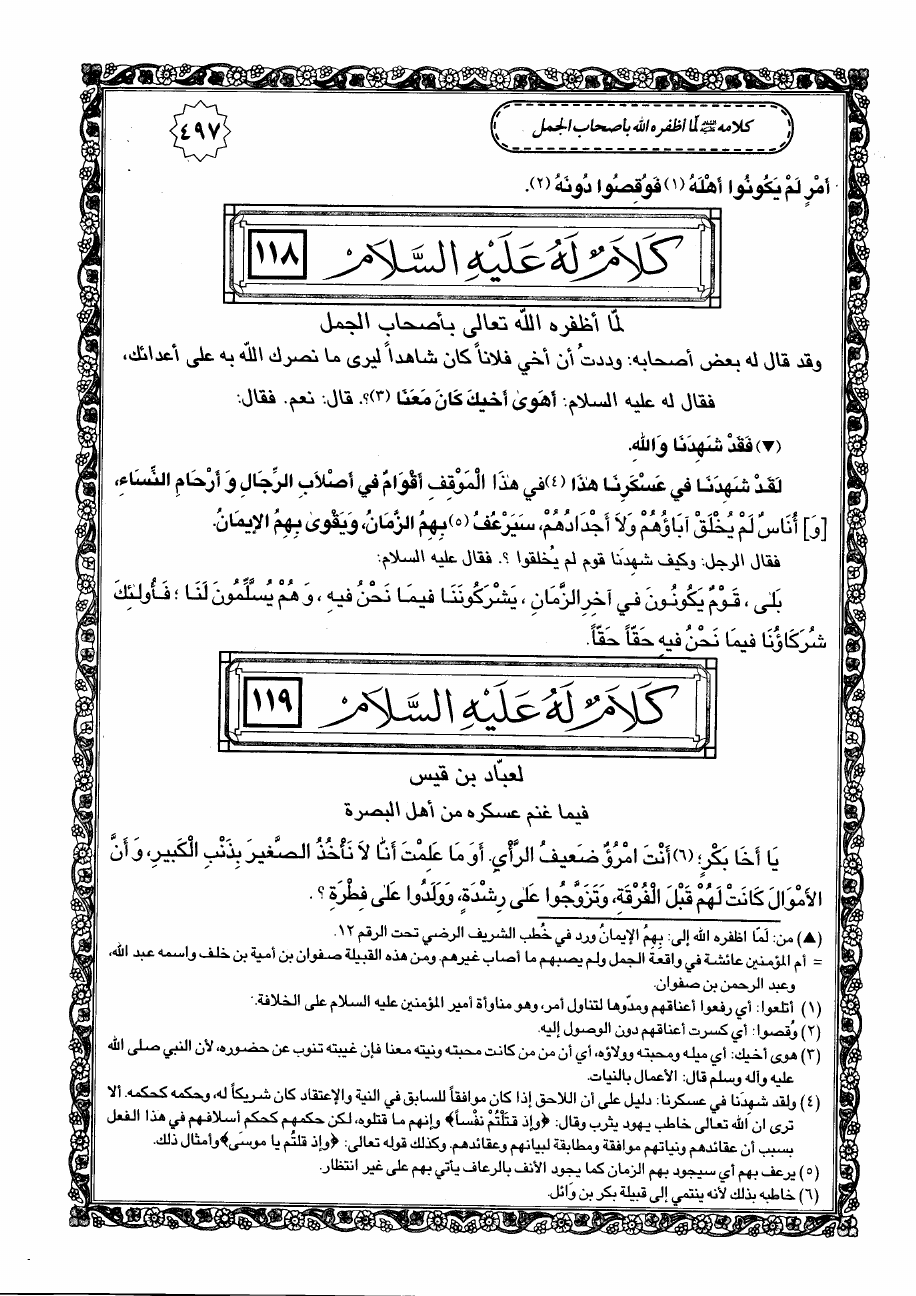 كلامه ﷺ لمّا اظفره الله بأصحاب الجمل
٤٩٧
أَمْرٍ لَمْ يَكُونُوا أَهْلَهُ (١) فَوُقِصُوا دُونَهُ (٢).
كَلَامٌ لَهُ عَلَيْهِ السَّلَامُ
١١٨
لمّا أظفره اللّه تعالى بأصحاب الجمل
وقد قال له بعض أصحابه: وددتُ أن أخي فلاناً كان شاهداً ليرى ما نصرك اللّه به على أعدائك،
فقال له عليه السلام: أَهَوىٰ أَخيكَ كَانَ مَعَنَا (٣)؟. قال: نعم. فقال:
(▼) فَقَدْ شَهِدَنَا وَاللهِ.
لَقَدْ شَهِدَنَا في عَسْكَرِنَا هذَا (٤) في هٰذَا الْمَوْقِفِ أَقْوَامٌ في أَصْلاَبِ الرِّجَالِ وَ أَرْحَامِ النِّسَاءِ،
[وَ] أُنَاسٌ لَمْ يُخْلَقْ آبَاؤُهُمْ وَلاَ أَجْدَادُهُمْ، سَيَرْعَفُ (٥) بِهِمُ الزَّمَانُ، وَيَقْوىٰ بِهِمُ الإيمَانُ.
فقال الرجل: وكيف شهدَنا قوم لم يُخلقوا ؟. فقال عليه السلام:
بَلىٰ ، قَوْمٌ يَكُونُونَ في آخِرِ الزَّمَانِ ، يَشْرَكُونَنَا فيمَا نَحْنُ فيهِ ، وَ هُمْ يُسَلِّمُونَ لَنَا ؛ فَأُولٰئِكَ
شُرَكَاؤُنَا فيمَا نَحْنُ فيهِ حَقّاً حَقّاً.
كَلَامٌ لَهُ عَلَيْهِ السَّلَامُ
١١٩
لعبّاد بن قيس
فيما غنم عسكره من أهل البصرة
يَا أَخَا بَكْرٍ؛ (٦) أَنْتَ امْرُؤٌ ضَعيفُ الرَّأْيِ. أَوَ مَا عَلِمْتَ أَنَّا لاَ نَأْخُذُ الصَّغيرَ بِذَنْبِ الْكَبيرِ، وَ أَنَّ
الأَمْوَالَ كَانَتْ لَهُمْ قَبْلَ الْفُرْقَةِ، وَتَزَوَّجُوا عَلىٰ رِشْدَةٍ، وَوَلَدُوا عَلىٰ فِطْرَةٍ ؟ .
(▲) من: لَمّا اظفره الله إلى: بِهِمُ الإيمَانُ ورد في خُطب الشريف الرضي تحت الرقم ١٢.
= أم المؤمنين عائشة في واقعة الجمل ولم يصبهم ما أصاب غيرهم. ومن هذه القبيلة صفوان بن أمية بن خلف واسمه عبد الله،
وعبد الرحمن بن صفوان.
(١) أتلعوا: أي رفعوا أعناقهم ومدّوها لتناول أمر، وهو مناوأة أمير المؤمنين عليه السلام على الخلافة.
(٢) وُقصوا: أي كسرت أعناقهم دون الوصول إليه.
(٣) هوى أخيك: أي ميله ومحبته وولاؤه، أي أن من من كانت محبته ونيته معنا فإن غيبته تنوب عن حضوره، لأن النبي صلى الله
عليه وآله وسلم قال: الأعمال بالنيات.
(٤) ولقد شهدَنا في عسكرنا: دليل على أن اللاحق إذا كان موافقاً للسابق في النية والإعتقاد كان شريكاً له، وحكمه كحكمه. ألا
ترى ان الله تعالى خاطب يهود يثرب وقال: ﴿وإذ قتلْتُمْ نفْساً﴾ وإنهم ما قتلوه، لكن حكمهم كحكم أسلافهم في هذا الفعل
بسبب أن عقائدهم ونياتهم موافقة ومطابقة لبيانهم وعقائدهم. وكذلك قوله تعالى: ﴿وإذ قلتُم يا موسى﴾ وأمثال ذلك.
(٥) يرعف بهم أي سيجود بهم الزمان كما يجود الأنف بالرعاف يأتي بهم على غير انتظار.
(٦) خاطبه بذلك لأنه ينتمي إلى قبيلة بكر بن وَائل.